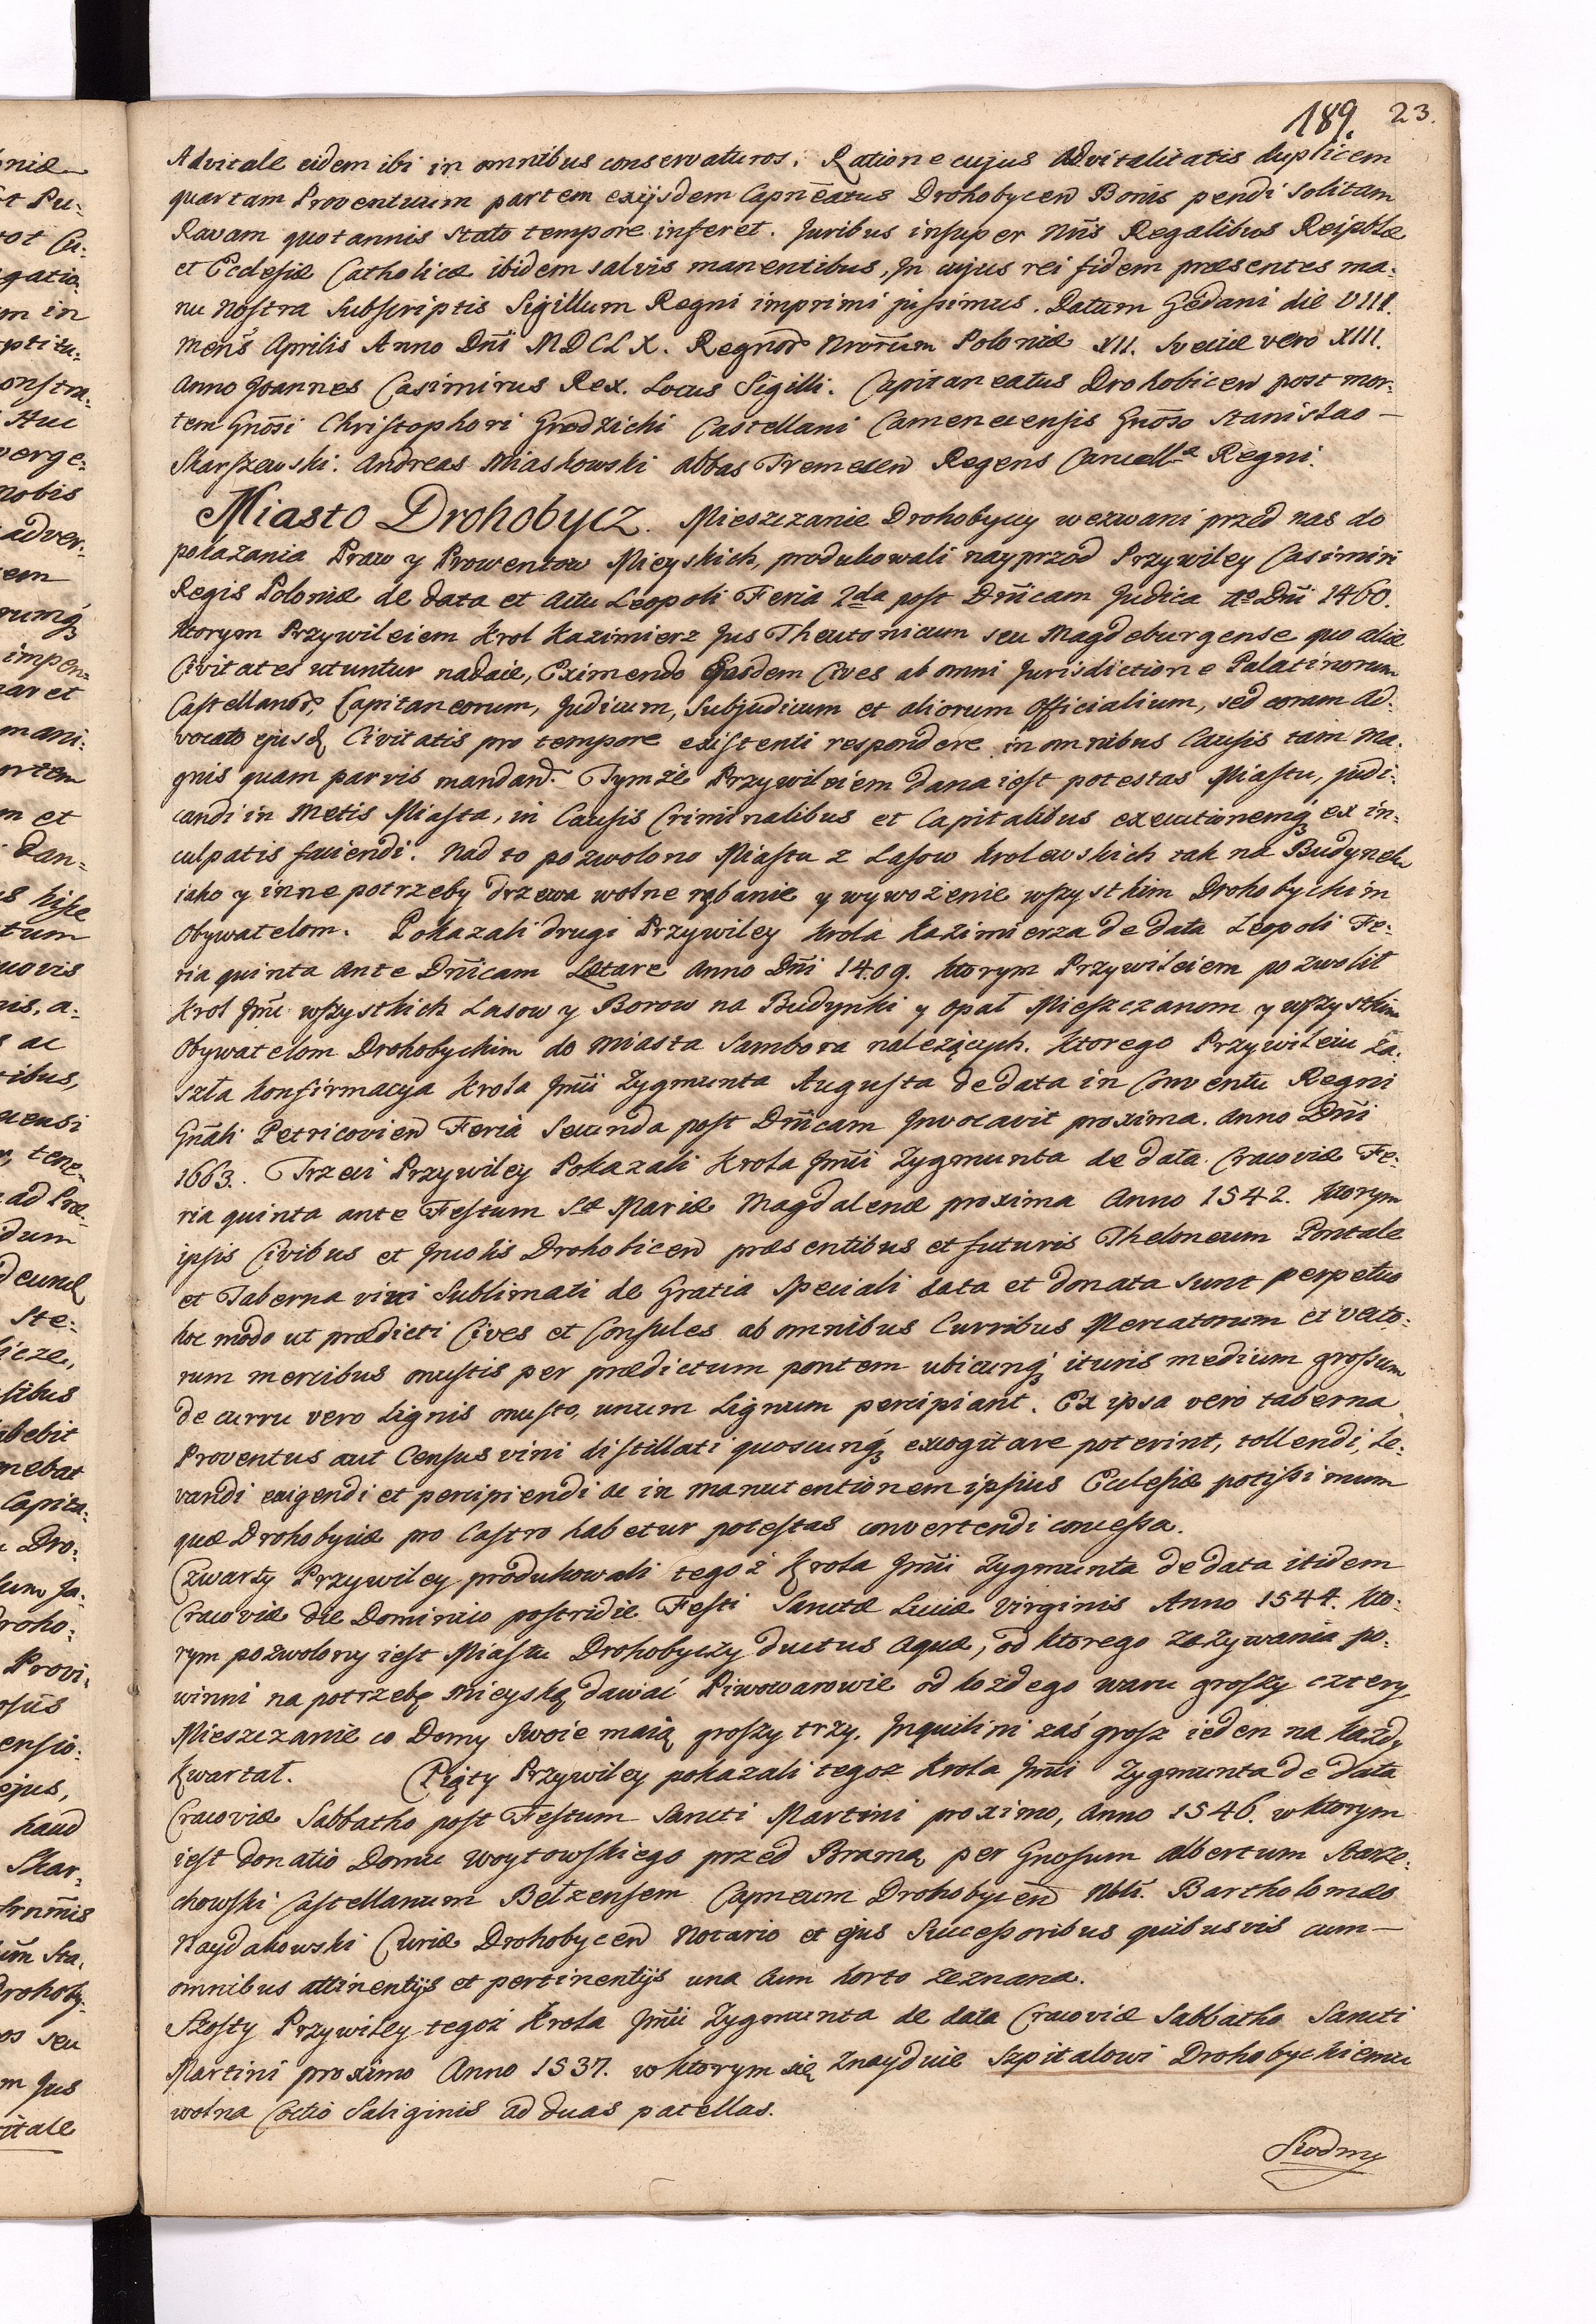 189. 23.
Advitale eidem ibi in omnibus conservaturos. Ratione cujus Advitalitatis duplicem
quartam Proventuum partem exijsdem Capnēatus Drohobycen Bonis pendi solitam
Ravam quotannis stato tempore inferet. Juribus insuper Nr̄is Regalibus Reipblæ
et Ecclesiæ Catholicæ ibidem salvis manentibus, Jn cujus rei fidem præsentes ma:
nu Nostra Subscriptis Sigillum Regni imprimi jussimus. Datum Gedani die VIII.
mens̄ Aprilis Anno Dn̄i MDCLX. Regnor̄ Nror̄um Poloniæ XII. Sveciæ vero XIII.
Anno Joannes Casimirus Rex. Locus Sigilli. Capitaneatus Drohobicen post mor:
tem Gnōsi Christophori Grodzicki Castellani Camenecensis Gnōso Stanislao —
Skarszewski. Andreas Miaskowski abbas Tremesen Regens Cancellæ Regni.
Miasto Drohobycz. Mieszczanie Drohobyccy wezwani przed nas do
pokazania Praw y Prowentow Mieyskich, produkowali nayprzod Przywiley Casimiri
Regis Poloniæ de data et actu Leopoli Feria 2da post Dn̄icam Judica Ao Dn̄i 1460.
ktorym Przywileiem Krol Kazimierz Jus Theutonicum seu Magdeburgense quo aliæ
Civitates utuntur nadaie, Eximendo Easdem Cives ab omni Jurisdictione Palatinorum
Castellanor̄, Capitaneorum, Judicum, Subjudicum et aliorum Officialium, sed coram Ad:
vocato ejusd Civitatis pro tempore existenti respondere in omnibus Causis tam ma:
gnis quam parvis mandand. Tymże Przywileiem dana iest potestas Miastu, judi:
candi in Metis Miasta, in Causis Criminalibus et Capitalibus executionemq̨ ex in:
culpatis faciendi. Nad to pozwolono Miastu z Lasow Krolewskich tak na Budynek
iako y inne potrzeby drzewa wolne rąbanie y wywożenie wszystkim Drohobyckim
Obywatelom. Pokazali drugi Przywiley Krola Kazimierza de data Leopoli Fe:
ria quinta Ante Dn̄icam Lætare Anno Dn̄i 1409. ktorym Przywileiem pozwolił
Krol Jm̄ć wszystkich Lasow y Borow na Budynki y Opał Mieszczanom y wszystkim
Obywatelom Drohobyckim do Miasta Sambora należących. Ktorego Przywileiu za:
szła konfirmacya Krola Jm̄ci Zygmunta Augusta de data in Conventu Regni
Gn̄ali Petricovien Feria Secunda post Dn̄icam Jnvocavit proxima. Anno Dn̄i
1663. Trzeci Przywiley Pokazali Krola Jm̄ci Zygmunta de data Cracoviæ Fe:
ria quinta ante Festum Stæ Mariæ Magdalenæ proxima Anno 1542. ktorym
ipsis Civibus et Jncolis Drohobicen præsentibus et futuris Theloneum Pontale
et Taberna vini Sublimati de Gratia Speciali data et donata sunt perpetuo
hoc modo ut prædicti Cives et Consules ab omnibus Curribus Mercatorum et vecto:
rum mercibus onustis per prædictum pontem ubicunq̨ ituris medium grossum
de curru vero Lignis onusto, unum Lignum percipiant. Ex ipsa vero taberna
Proventus aut Census vini distillati quoscunq̨ excogitare poterint, tollendi, le:
vandi exigendi et percipiendi ac in manutentionem ipsius Ecclesiæ potissimum
quæ Drohobyciæ pro Castro habetur potestas convertendi concessa.
Czwarty Przywiley produkowali tegoż Krola Jm̄ci Zygmunta de data itidem
Cracoviæ die Dominico postridie Festi Sanctæ Luciæ Virginis Anno 1544. kto:
rym pozwolony iest Miastu Drohobyczy ductus aquæ, od ktorego zażywania po:
winni na potrzebę mieyską dawać Piwowarowie od każdego waru groszy cztery
Mieszczanie co Domy swoie maią groszy trzy. Jnquilini zaś grosz ieden na każdy
Kwartał. Piąty Przywiley pokazali tegoż Krola Jm̄ci Zygmunta de data
Cracoviæ Sabbatho post Festum Sancti Martini proximo, Anno 1546. w ktorym
iest donatio Domu Woytowskiego przed Bramą per Gnosum Albertum Starze:
chowski Castellanum Bełzensem Capneum Drohobycen Nbli. Bartholomæo
Naydakowski Curiæ Drohobycen Notario et ejus Successoribus quibusvis cum —
omnibus attinentijs et pertinentijs una cum horto zeznana.
Szosty Przywiley tegoż Krola Jm̄ci Zygmunta de data Cracoviæ Sabbatho Sancti
Martini proximo Anno 1537. w ktorym się znayduie Szpitalowi Drohobyckiemu
wolna Coctio Saliginis ad duas patellas.
Siodmy